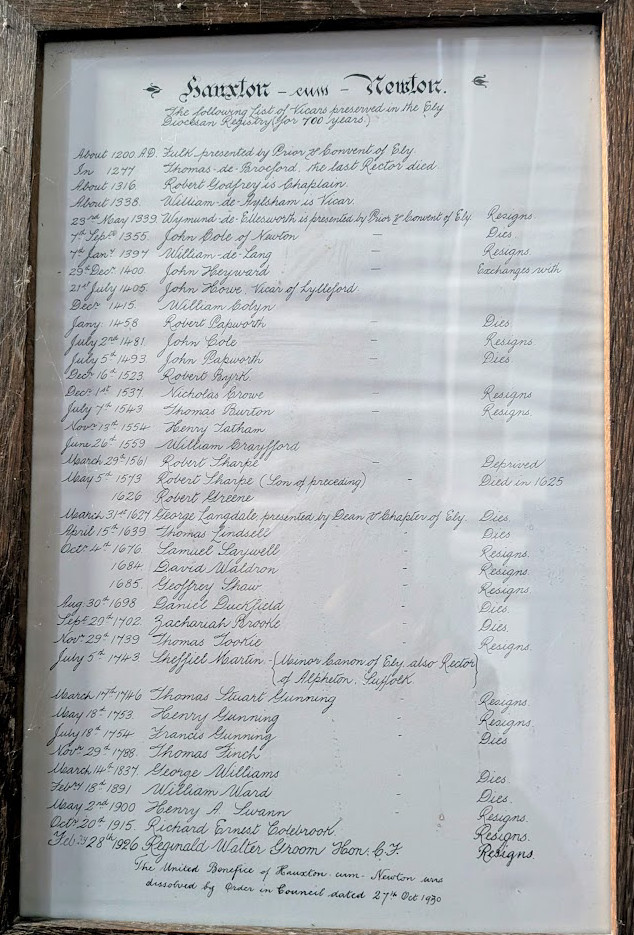 Hauxton - cum - Newton.
The following List of Vicars preserved in the Ely
Diocesan Registry (for 700 years.)
About 1200 A.D. Fulk presented by Prior & Convent of Ely.
In 1277 Thomas-de-Brocford, the last Rector died.
About 1316. Robert Godfrey is Chaplain.
About 1338. William-de-Aylsham is Vicar.
23rd May 1339. Wymund-de-Edesworth is presented by Prior & Convent of Ely. Resigns.
7th Septr 1355. John Cole of Newton — Dies
7th Jany 1397 William-de-Lang — Resigns.
29th Decr 1400. John Heyward — Exchanges with
21st July 1405. John Howe, Vicar of Lylleford.
Decr 1415. William Colyn
Jany. 1458 Robert Papworth — Dies.
July 2nd 1481. John Cole — Resigns.
July 5th 1493. John Papworth — Dies
Decr 16th 1523. Robert Byrk.
Decr 1st 1537. Nicholas Crowe — Resigns
July 7th 1543 Thomas Burton — Resigns.
Novr 13th 1554 Henry Tatham
June 26th 1559 William Crayfford
March 29th 1561 Robert Sharpe — Deprived
May 5th 1573 Robert Sharpe (Son of preceding) - Died in 1625
1626 Robert Greene
March 31st 1627 George Langdale, presented by Dean & Chapter of Ely. Dies.
April 15th 1639 Thomas Lindsell - Dies
Octr 4th 1676. Samuel Saywell - Resigns.
1684. David Waldron - Resigns.
1685. Geoffrey Shaw - Resigns.
Aug. 30th 1698 Daniel Duckfield - Dies.
Septr 29th 1702. Zachariah Brooke - Dies.
Novr 29th 1739 Thomas Tookie - Resigns.
July 5th 1743 Sheffiel Martin. - {Minor Canon of Ely, also Rector}
{of Alpheton, Suffolk}
March 17th 1746 Thomas Stuart Gunning - Resigns.
May 18th 1753. Henry Gunning - Resigns.
July 18th 1754 Francis Gunning - Dies
Novr 29th 1788. Thomas Finch
March 14th 1837. George Williams - Dies.
Febry 18th 1891 William Ward - Dies.
May 2nd 1900 Henry A. Swann - Resigns.
Octr 20th 1915. Richard Ernest Colebrook. - Resigns.
Feb:ry 28th 1926 Reginald Walter Groom Hon. C.F. Resigns.
The United Benefice of Hauxton-cum-Newton was
dissolved by Order in Council dated 27th Oct 1930